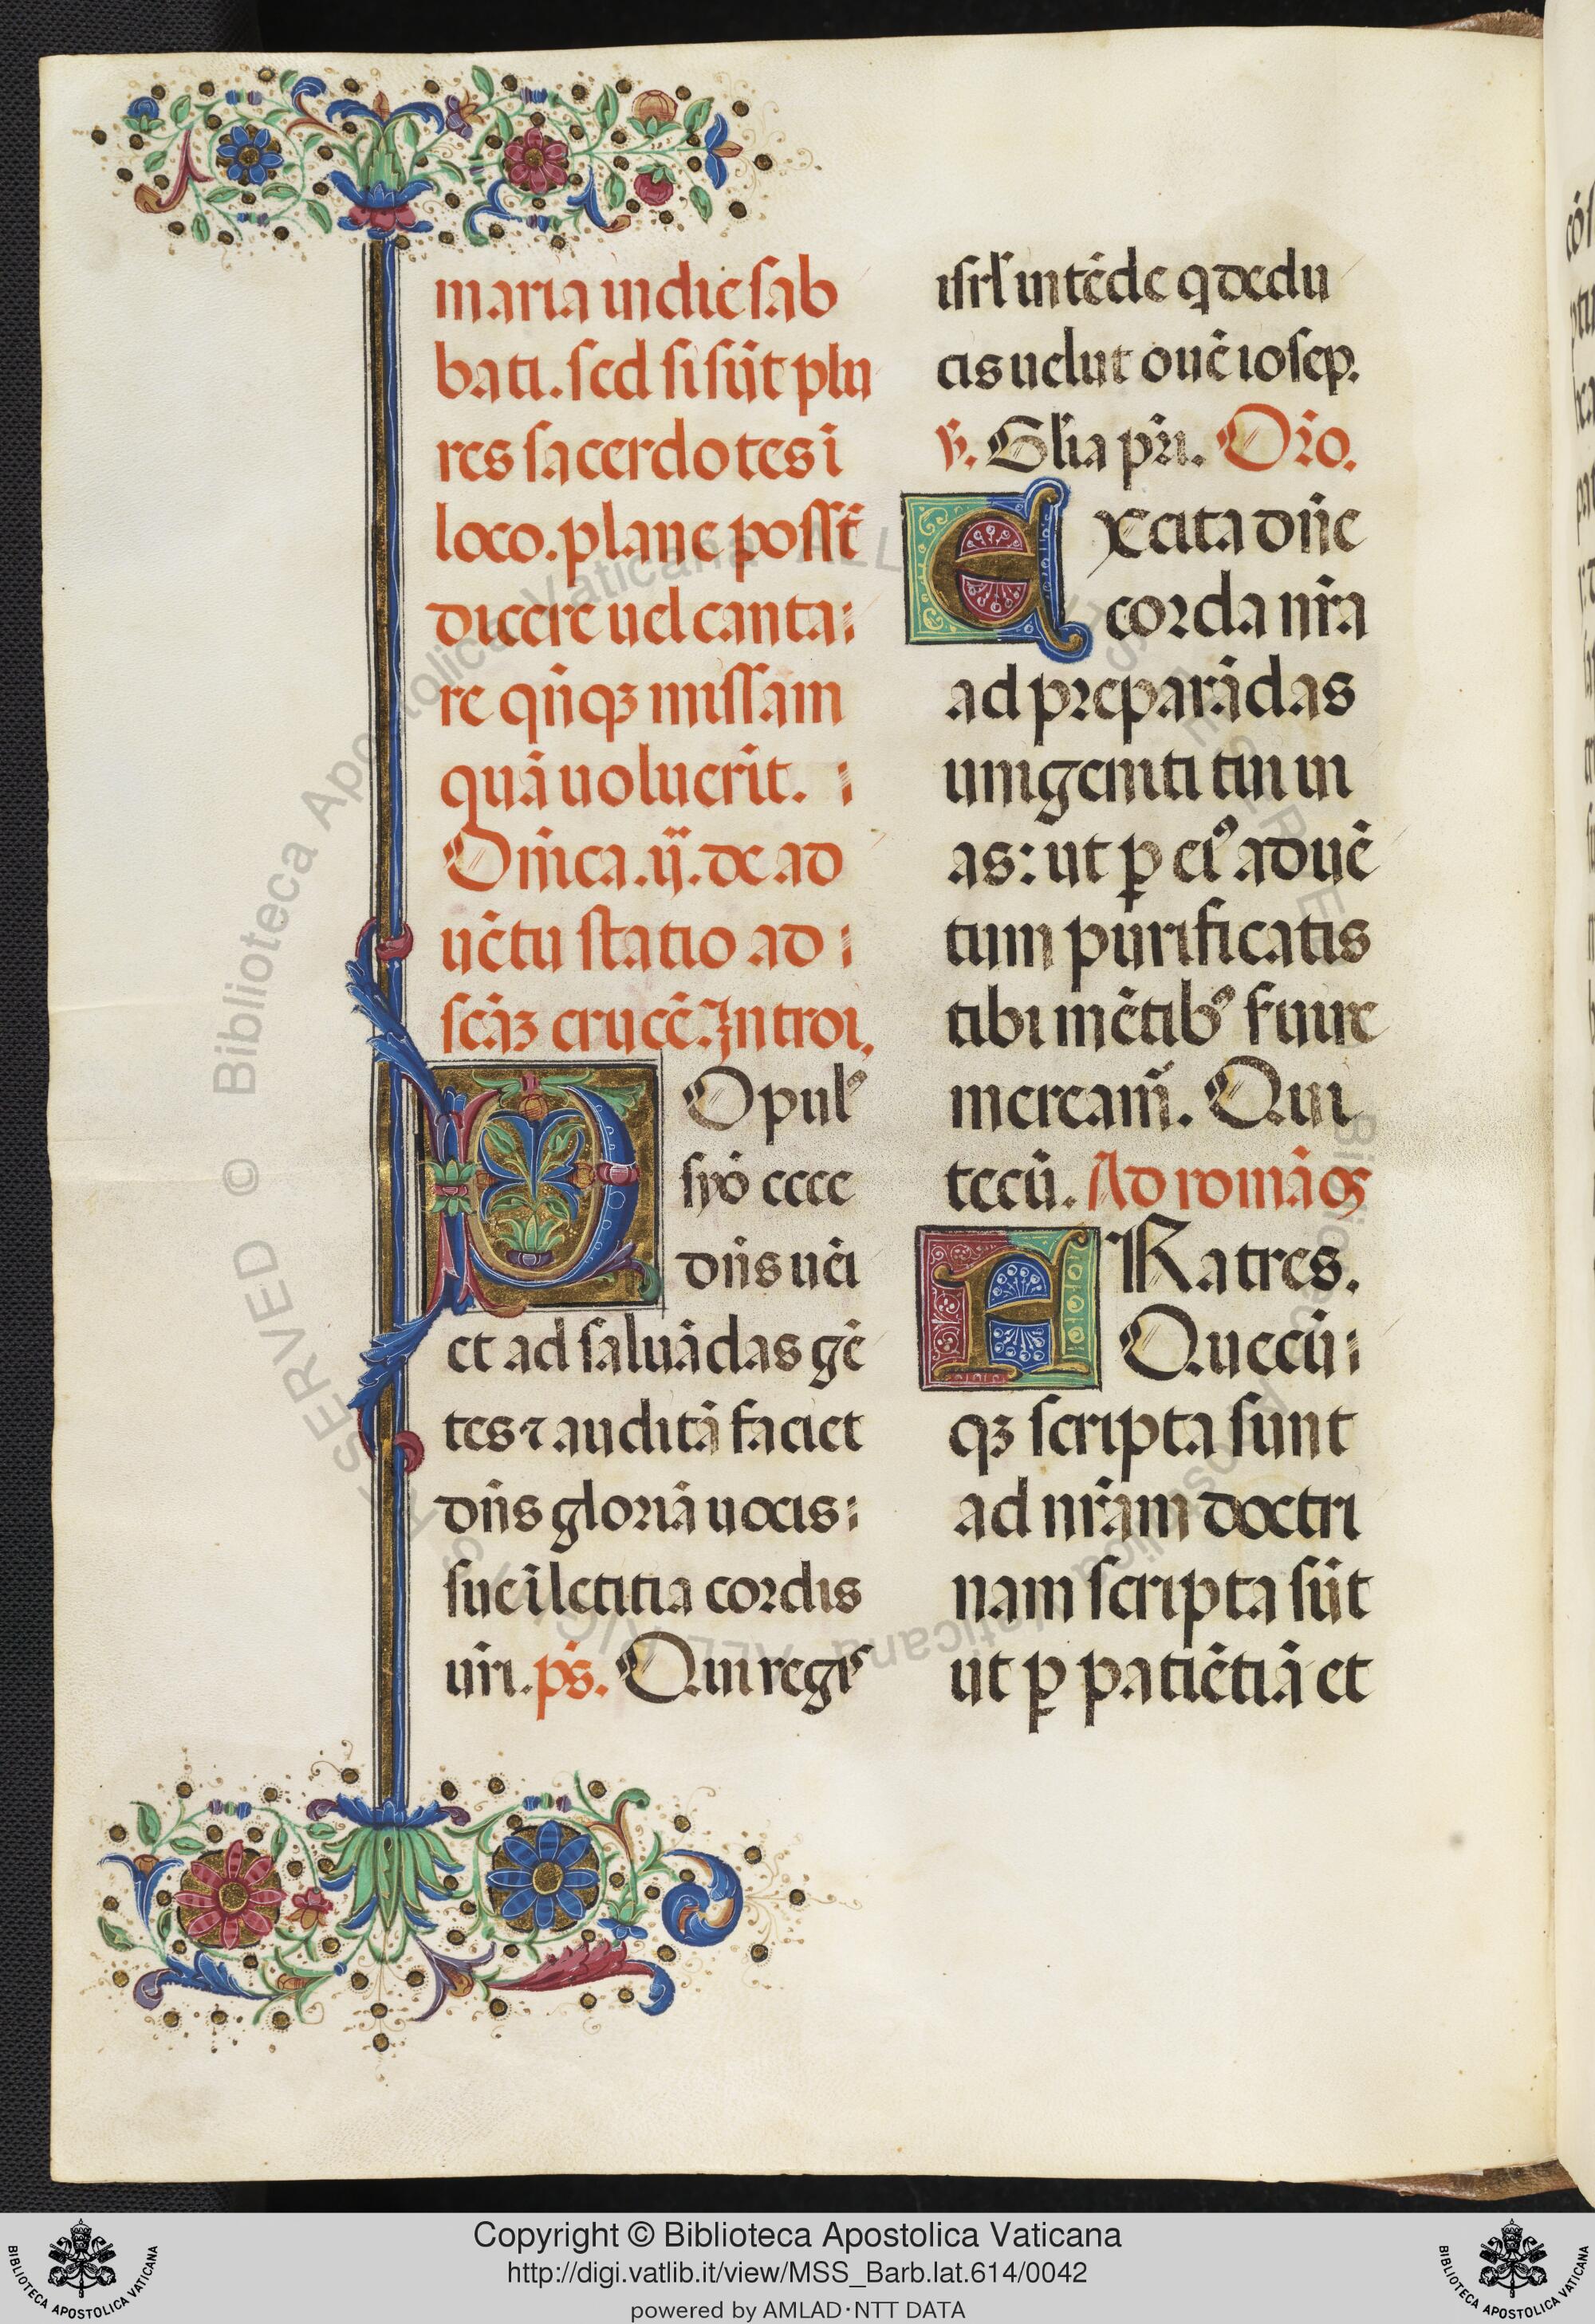 maria in die sab
bati. sed si sūt plu
res sacerdotes ī
loco. plane possēt
dicere uel canta
re qn̄qꝫ missam
quā uoluerīt.
Dn̄ica .ij. de ad
uētu statio ad
scāꝫ crucē. Introi.
POpulꝰ
syō ecce
dn̄s uēi
et ad saluādas gē
tes ⁊ auditā faciet
dn̄s gloriā uocis
sue ī letitia cordis
ur̄i. ps̄. Qui regꝭ
isrl̄ intēde q dedu
cis uelut ouē iosep.
℣. Gl̄ia pr̄i. Or̄o.
EXcita dn̄e
corda nr̄a
ad preparādas
unigeniti tui ui
as: ut ꝑ eiꝰ aduē
tum purificatis
tibi mētibꝰ seruire
mereamr̄. Qui
tecū. Ad romāos
FRatres.
Quecū
qꝫ scripta sunt
ad nr̄am doctri
nam scripta sūt
ut ꝑ patiētiā et
© Biblioteca Apostolica Vaticana ALL RIGHTS RESERVED
Copyright © Biblioteca Apostolica Vaticana
http://digi.vatlib.it/view/MSS_Barb.lat.614/0042
powered by AMLAD·NTT DATA
BIBLIOTECA APOSTOLICA VATICANA
BIBLIOTECA APOSTOLICA VATICANA